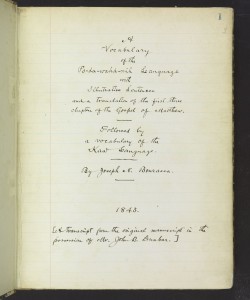 A
Vocabulary
of the
Potawatomi Language
with
Illustrative Sentences
and a translation of the first three
chapters of the Gospel of Matthew.
Followed by
a vocabulary of the
Kaw Language.
By Joseph N. Bourassa.
1843.
[A transcript from the original manuscript in the
possession of Mr. John B.